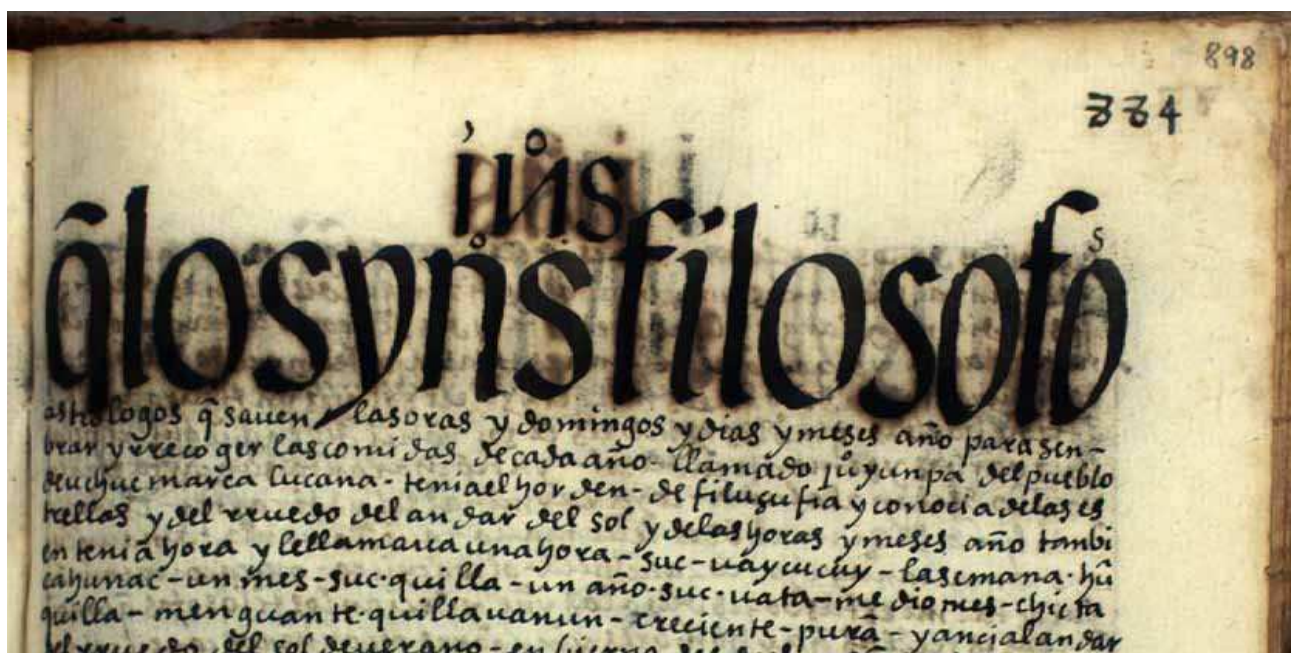 898
884
inͦs
q̃ losynͦs filosofos
astrologos q̃ sauen las oras y domingos y dias y meses año para sen-
brar y rrecoger las comidas de cada año - llamado juͦ yunpa del pueblo
de uchucmarca lucana - tenia el horden - de filusufia y conocia de las es
trellas y del rruedo del andar del sol y de las horas y meses año tanbi
en tenia hora y le llamaua una hora - suc - uaycucuy - la semana - hũ
cahunac - un mes - suc - quilla - un año - suc - uata - medio mes - chicta
quilla - menguante - quilla uanun - creciente - purã - y anci al andar
el rruedo del sol de uerano - en bierno